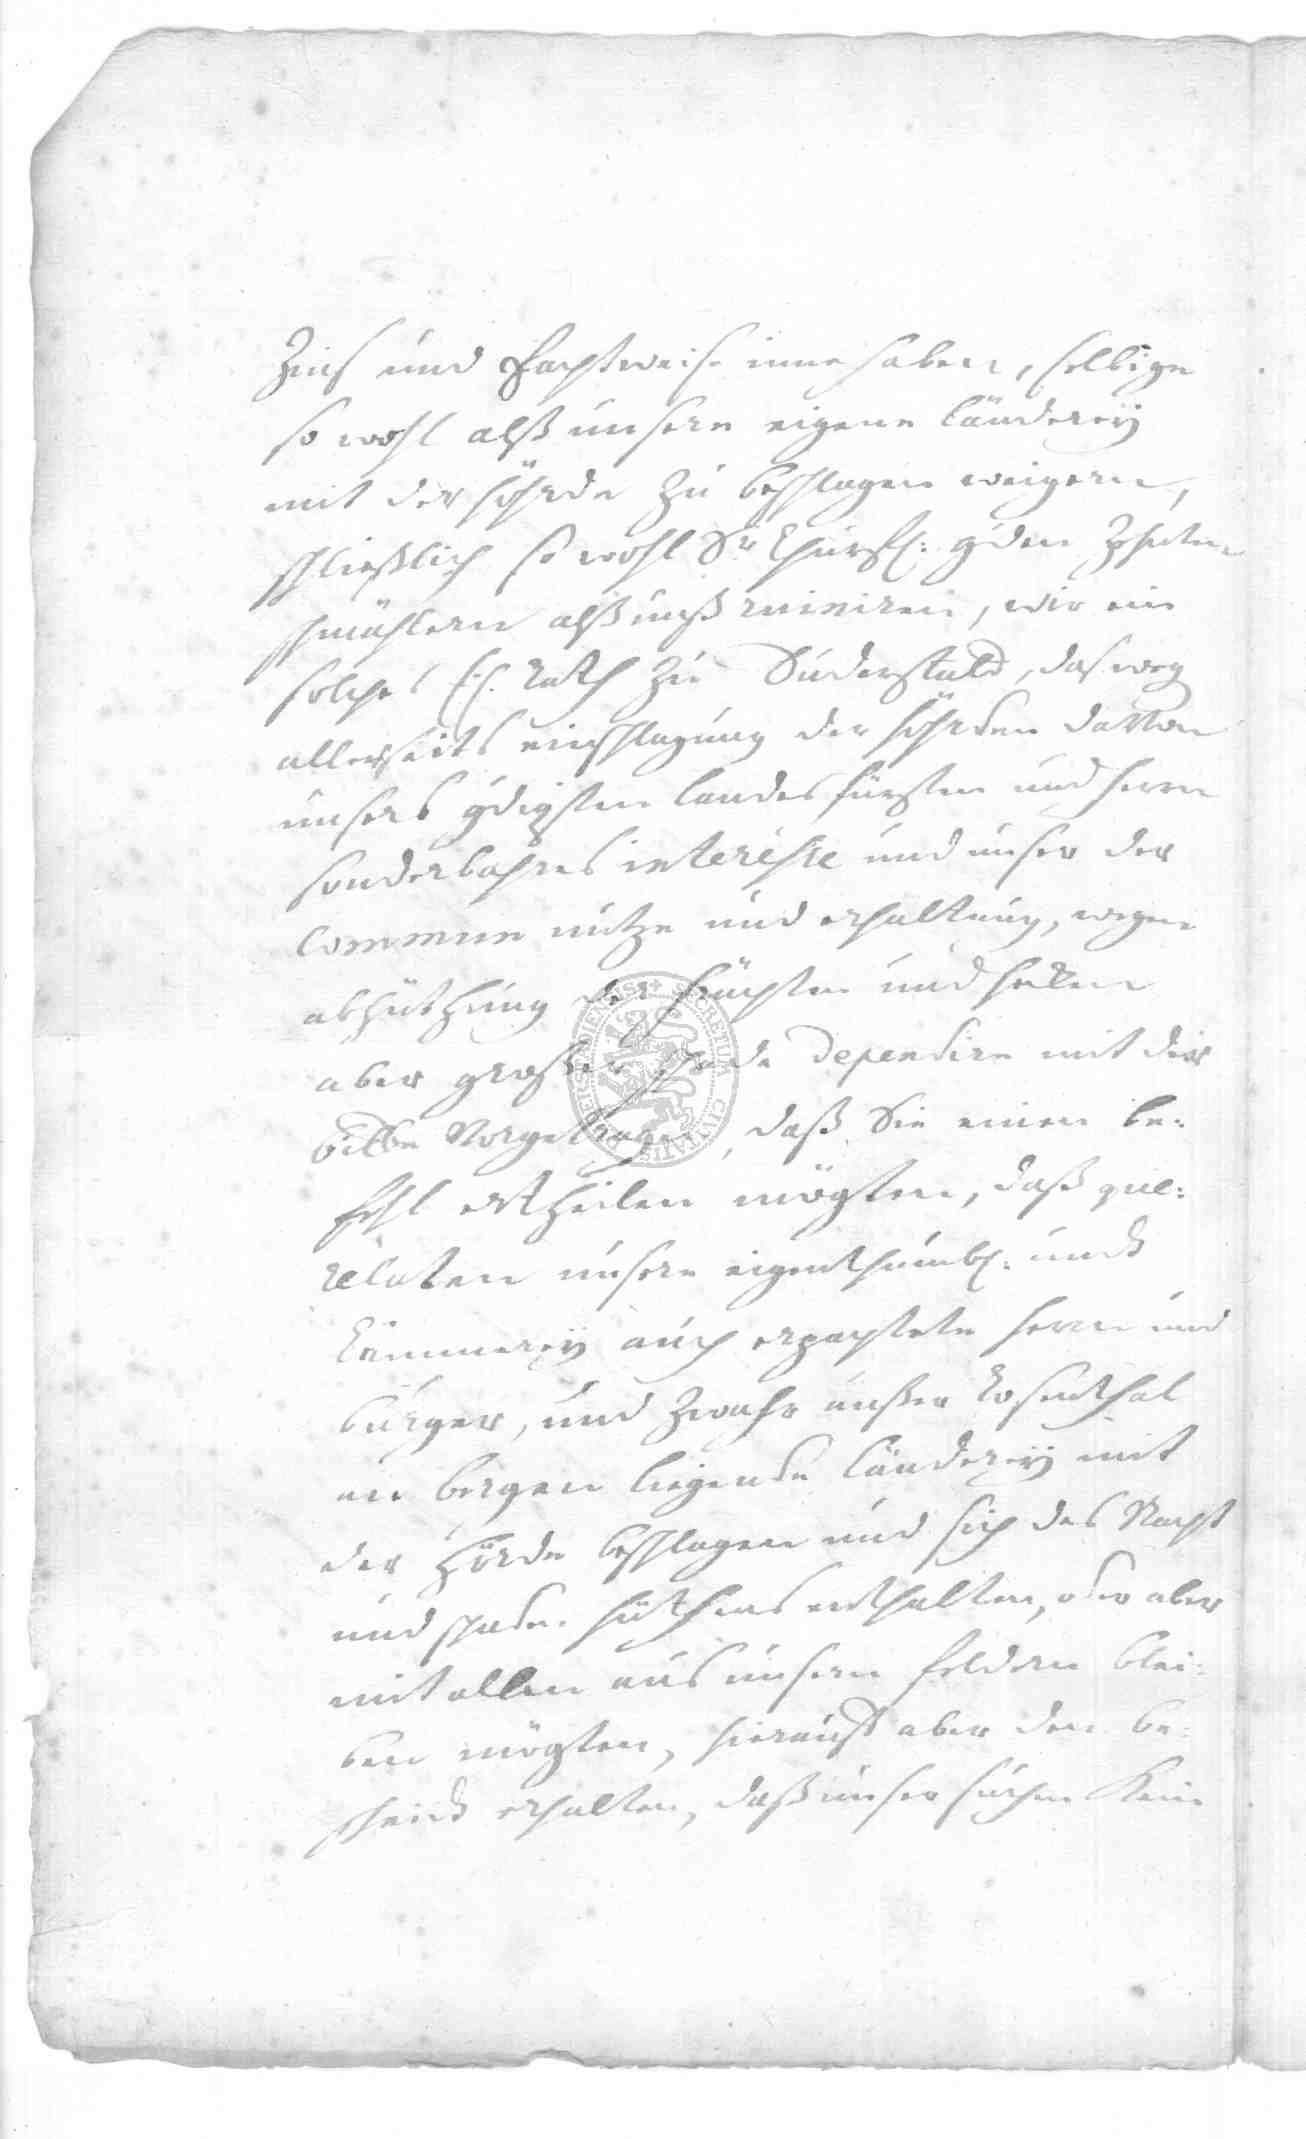 Zins und Pachtweise inne haben, selbige
so wohl alß unsere eigene länderey
mit der hörde zu beschlagen weigern,
schließlich so wohl Sr Churfl: gden Zehnten
schmählern alß unß ruiniren, wir ein
solches E. E. Rath zu Duderstadt, das weg
allerseits einschlagung der hörden darvon
unsers gdigsten landes fürsten und herrn
sonderbahres interesse und unser der
Commun nutze und erhaltung, wegen
abhüthung der früchten und
aber großer schade dependire mit der
bitte Vorgetragen, daß Sie einen be-
fehl ertheilen mögten, daß que-
relaten unsere eigenthumbl: und
Cämmerey auch erpachtete herrn und
bürger, und zwahr unßer Rosenthal
an bergen liegende länderey mit
der hörde beschlagen und sich des Nacht
und hüthens enthalten, oder aber
mit allen aus unsern feldern blei-
ben mögten, hierauff aber den be-
scheid erhalten, daß unser suchen kein
SECRETUM CIVITATIS